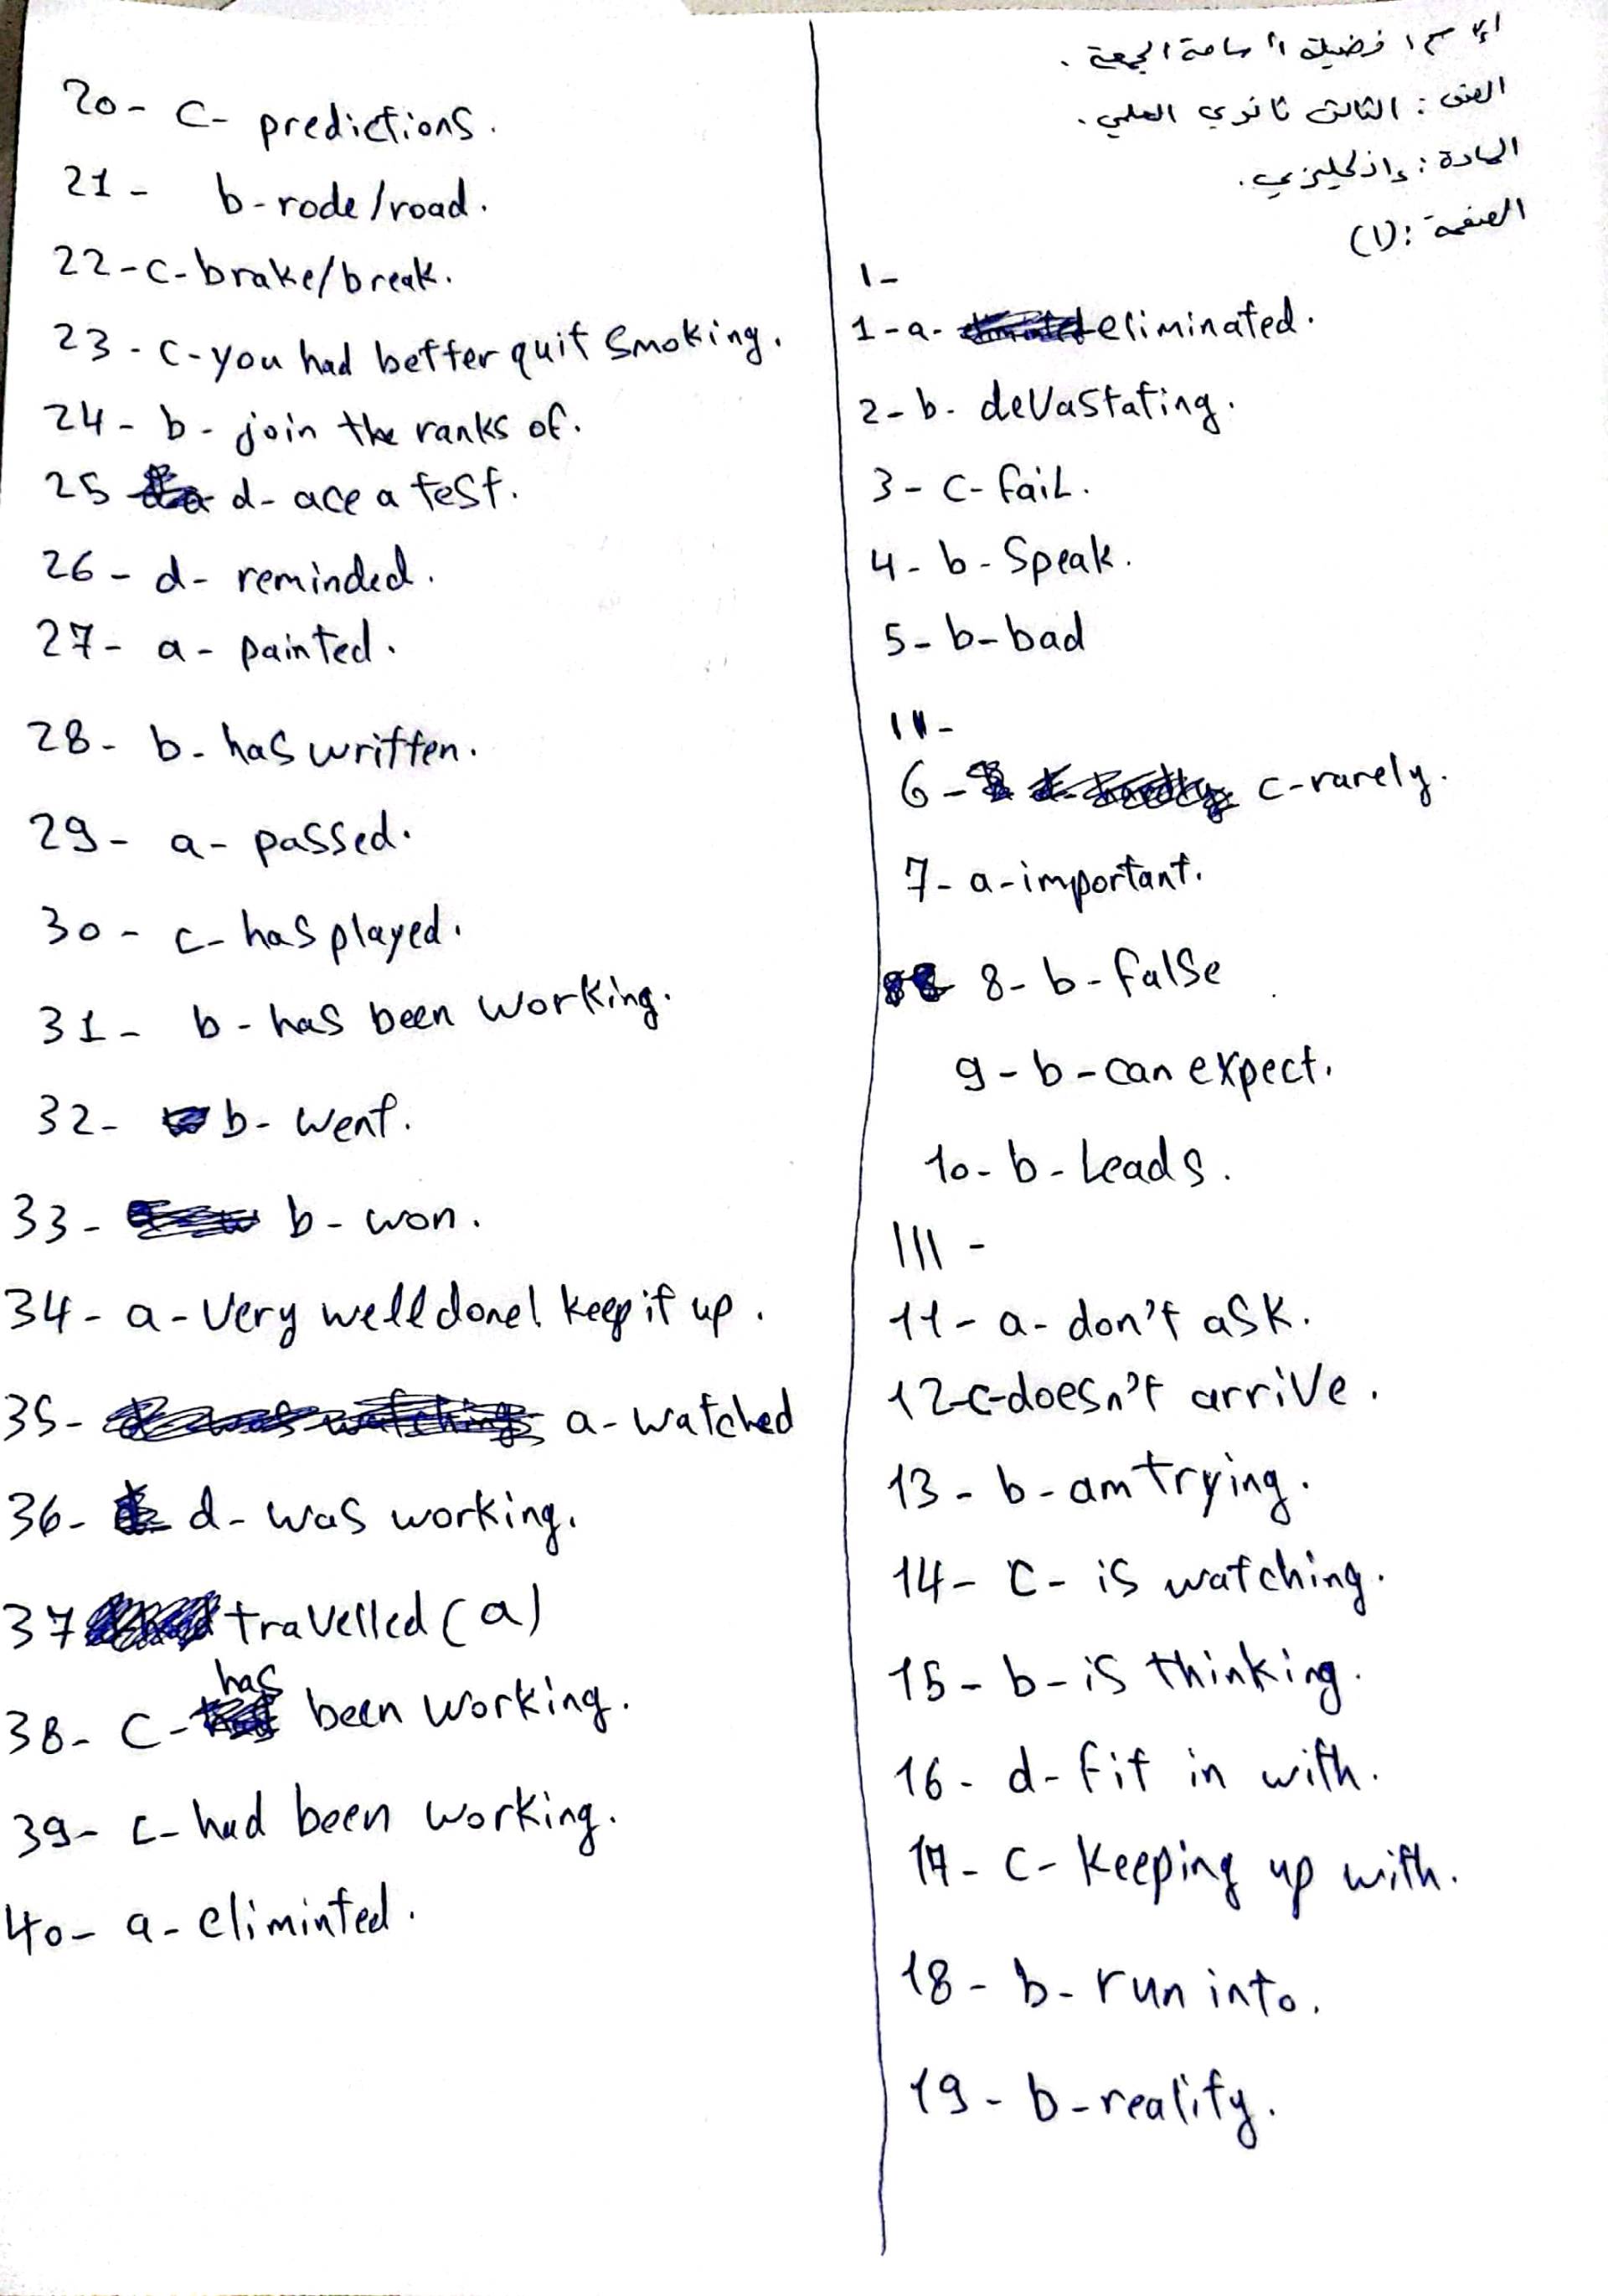 الإسم: فضيلة أسامة الجمعة.
الصف: الثالث ثانوي العلمي.
المادة: إنكليزي.
الصفحة: (١)
1-
1-a- eliminated.
2-b- devastating.
3-c-fail.
4-b-Speak.
5-b-bad
11-
6- c-rarely.
7-a-important.
8-b-false
9-b-can expect.
10-b-Leads.
111-
11-a-don't ask.
12-c-doesn't arrive.
13-b-am trying.
14-c-is watching.
15-b-is thinking.
16-d-fit in with.
17-c-Keeping up with.
18-b-run into.
19-b-reality.
20-c-predictions.
21- b-rode/road.
22-c-brake/break.
23-c-you had better quit smoking.
24-b-join the ranks of.
25 d-ace a test.
26-d-reminded.
27-a-painted.
28-b-has written.
29-a-passed.
30-c-has played.
31-b-has been working.
32- b-went.
33- b-won.
34-a-Very well done! keep it up.
35- a-watched
36- d-was working.
37 travelled (a)
38-c- has been working.
39-c-had been working.
40-a-eliminted.